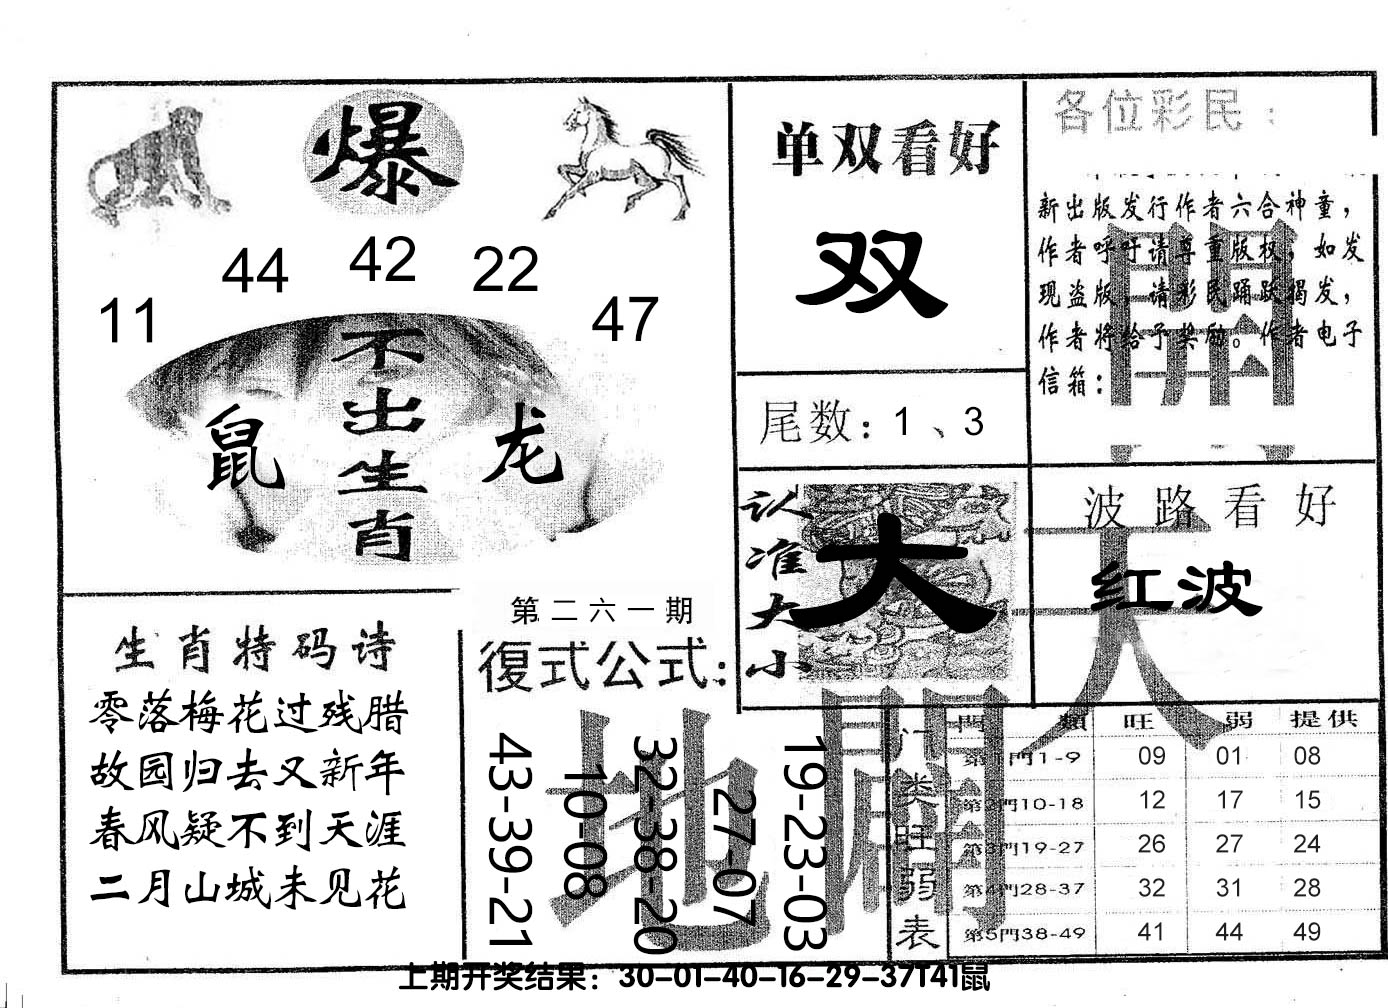 爆
11
44
42
22
47
不出生肖
鼠
龙
单双看好
双
尾数：1、3
各位彩民：
新出版发行作者六合神童，
作者呼吁请尊重版权，如发
现盗版，请彩民踊跃揭发，
作者将给予奖励。作者电子
信箱：
開
认准大小
大
波路看好
红波
天
生肖特码诗
零落梅花过残腊
故园归去又新年
春风疑不到天涯
二月山城未见花
第二六一期
復式公式：
43-39-21
10-08
32-38-20
27-07
19-23-03
地
門类旺弱表
門類 旺 弱 提供
第1門1-9 09 01 08
第2門10-18 12 17 15
第3門19-27 26 27 24
第4門28-37 32 31 28
第5門38-49 41 44 49
上期开奖结果：30-01-40-16-29-37T41鼠